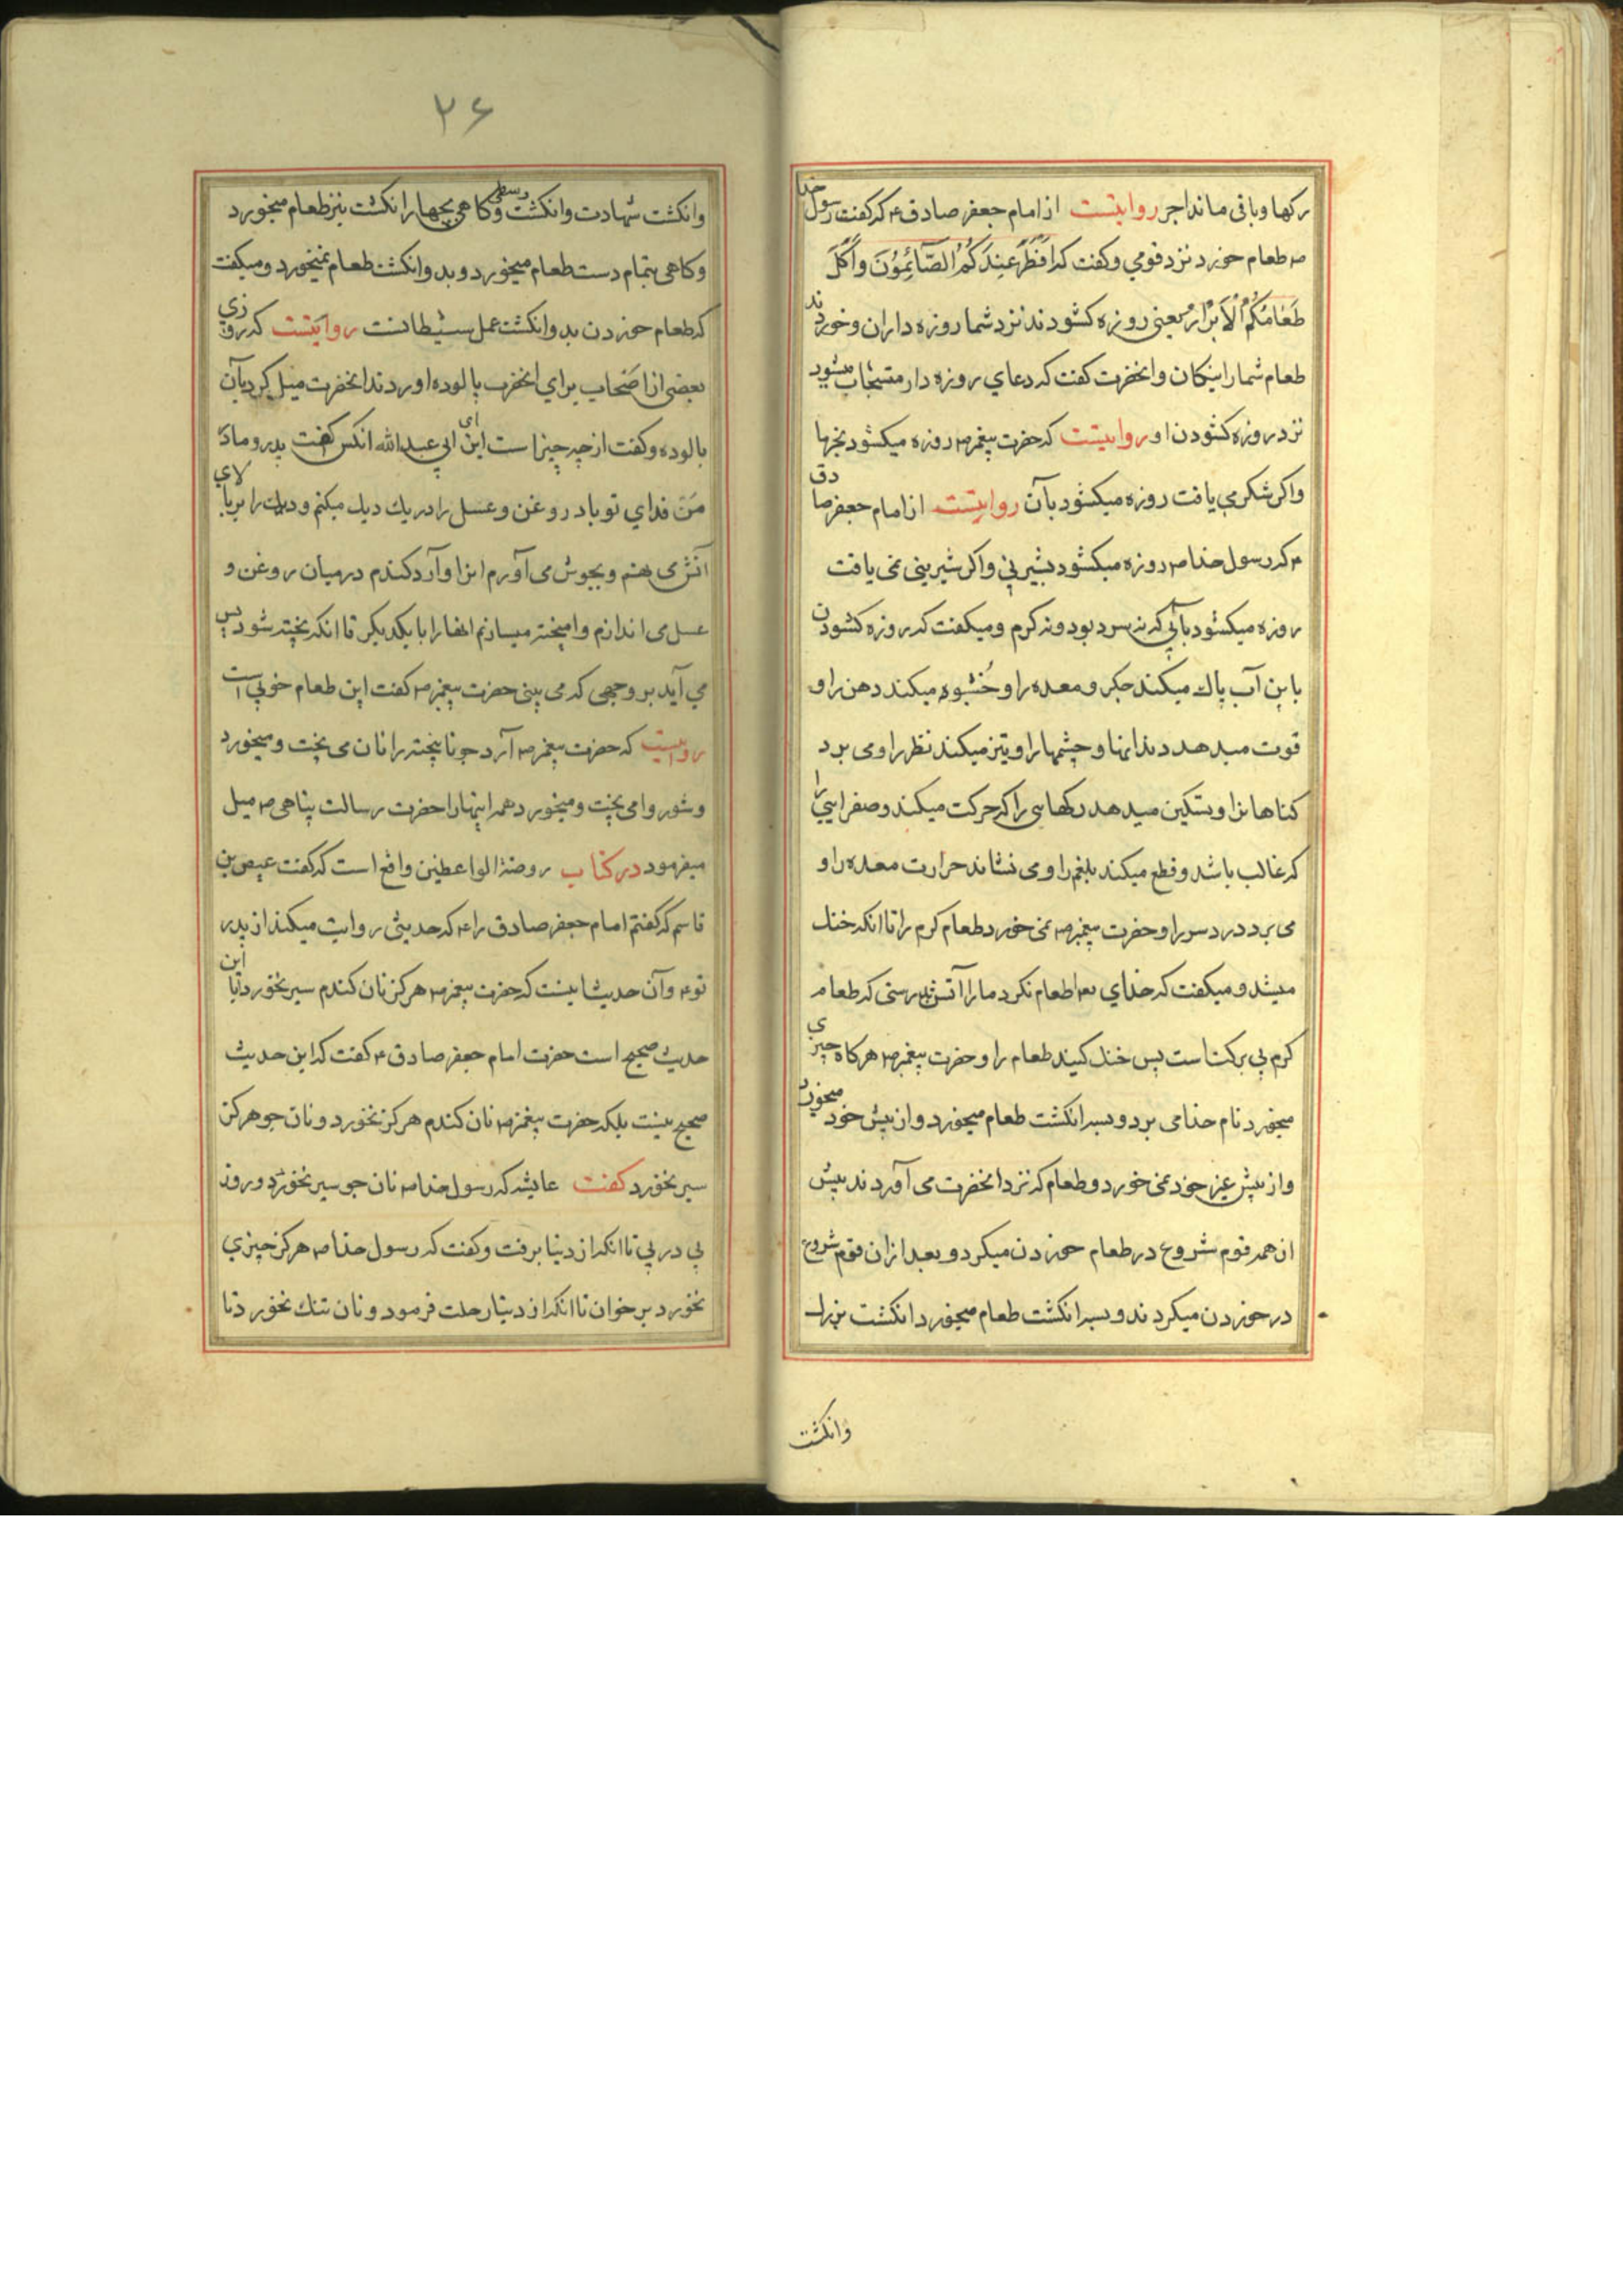 رکها و باقی ماند اجر روایتست از امام جعفر صادق ع که گفت رسول خدا
ص طعام خورد نزد قومی و کفت که اَفْطَرَ عِنْدَکُمُ الصَّائِمُوْنَ وَاَکَلَ
طَعَامَکُمُ الْاَبْرَارُ یعنی روزه کشودند نزد شما روزه داران و خوردند
طعام شما را نیکان و انحضرت کفت که دعای روزه دار مستجاب میشود
نزد روزه کشودن او روایتست که حضرت پیغمبر ص روزه میکشود بخرما
و اکر شکر می یافت روزه میکشود بآن روایتست از امام جعفر صادق
ع که رسول خدا ص روزه میکشود بشیرینی و اکر شیرینی نمی یافت
روزه میکشود بآبی که نه سرد بود و نه کرم و میکفت که روزه کشودن
باین آب پاک میکند جکر و معده را و خُشبوه میکند دهن را و
قوت میدهد دندانها و چشمها را و تیز میکند نظر را و می برد
کناهانرا و تسکین میدهد رکهایی را که حرکت میکند و صفرایی را
که غالب باشد و قطع میکند بلغم را و می نشاند حرارت معده را و
می برد درد سر را و حضرت پیغمبر ص نمی خورد طعام کرم را تا انکه خنک
میشد و میکفت که خدای تعه اطعام نکرد ما را آتش بدرستی که طعام
کرم بی برکتست پس خنک کنید طعام را و حضرت پیغمبر ص هر کاه چیزی
میخورد نام خدا می برد و بسه انکشت طعام میخورد و از پیش خود میخورد
و از پیش غیر خود نمی خورد و طعام که نزد انحضرت می آوردند پیش
از همه قوم شروع در طعام خوردن میکرد و بعد از ان قوم شروع
در خوردن میکردند و بسه انکشت طعام میخورد انکشت بزرک
وانکشت
۲۶
وانکشت شهادت وانکشت وسطی و کاهی بچهار انکشت نیز طعام میخورد
و کاهی بتمام دست طعام میخورد و بدو انکشت طعام نمیخورد و میکفت
که طعام خوردن بدو انکشت عمل شیطانست روایتست که روزی
بعضی از اصحاب برای انحضرت پالوده اوردند انحضرت میل کرد بآن
پالوده و کفت از چه چیز است این ای ابی عبدالله انکس کفت پدر و مادَر
مَن فدای تو باد روغن و عسل را در یک دیک میکنم و دیک را بر بالای
آتش می نهم و بجوش می آورم انرا و آرد کندم در میان روغن و
عسل می اندازم و امیخته میسازم انها را با یکدیکر تا انکه پخته شود پس
می آید بر وجهی که می بینی حضرت پیغمبر ص کفت این طعام خوبی است
روایتست که حضرت پیغمبر ص آرد جو نا پیخته را نان می پخت و میخورد
و شوروا می پخت و میخورد همه اینها را حضرت رسالت پناهی ص میل
میفرمود در کتاب روضة الواعظین واقع است که کفت عیص بن
قاسم که کفتم امام جعفر صادق را ع که حدیثی روایت میکنند از پدر
تو ع و آن حدیث اینست که حضرت پیغمبر ص هرکز نان کندم سیر نخورد آیا این
حدیث صحیح است حضرت امام جعفر صادق ع کفت که این حدیث
صحیح نیست بلکه حضرت پیغمبر ص نان کندم هرکز نخورد و نان جو هرکز
سیر نخورد کفت عایشه که رسول خدا ص نان جو سیر نخورد دو روز
پی در پی تا انکه از دنیا برفت و کفت که رسول خدا ص هرکز چیزی
نخورد بر خوان تا انکه از دنیا رحلت فرمود و نان تنک نخورد تا